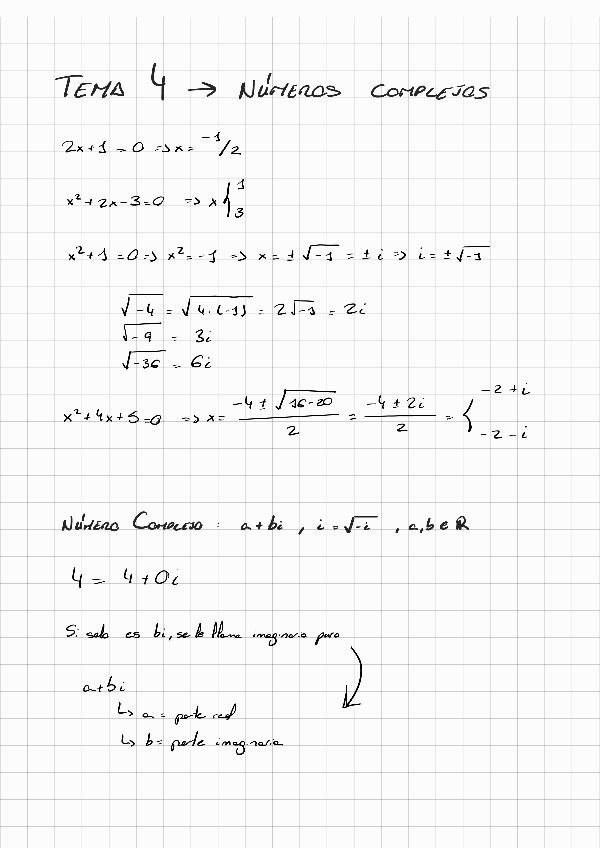 TEMA 4 → NÚMEROS COMPLEJOS
2x+1=0 ⇒ x= -1/2
x²+2x-3=0 ⇒ x { 1 3
x²+1=0 ⇒ x²=-1 ⇒ x=±√-1 = ±i ⇒ i=±√-1
√-4 = √4·(-1) = 2√-1 = 2i
√-9 = 3i
√-36 = 6i
x²+4x+5=0 ⇒ x= (-4±√16-20)/2 = (-4±2i)/2 = { -2+i -2-i
NÚMERO COMPLEJO: a+bi, i=√-i, a,b∈ℝ
4 = 4+0i
Si solo es bi, se le llama imaginario puro
a+bi
↳ a = parte real
↳ b = parte imaginaria